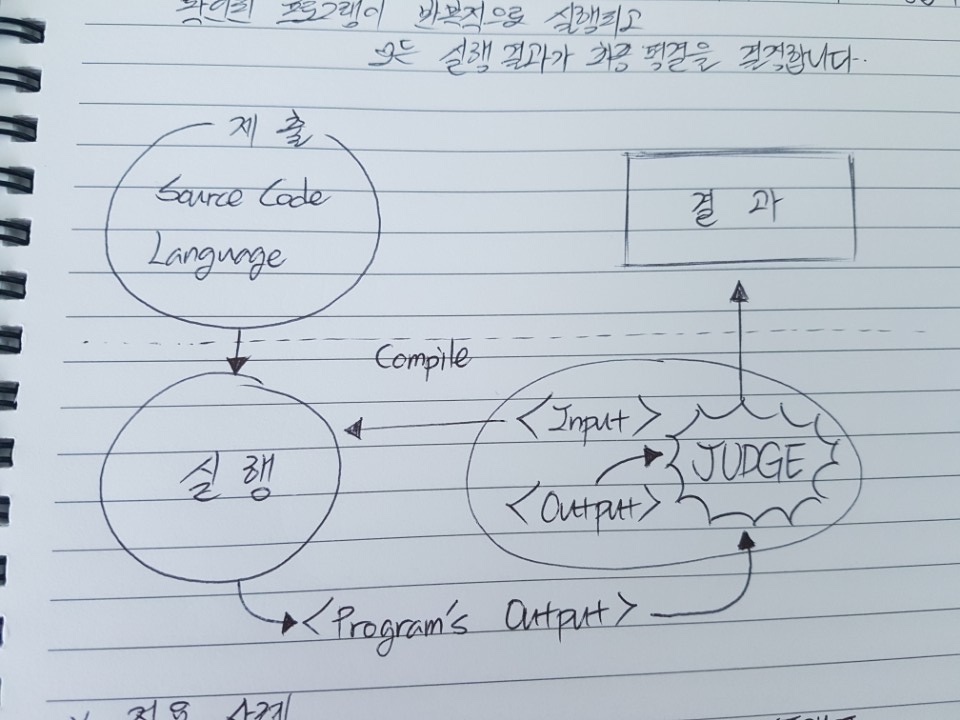 프로그램이 반복적으로 실행되고
모든 실행 결과가 최종 판결을 결정합니다.
제 출
Source Code
Language
결 과
Compile
<Input>
JUDGE
실 행
<Output>
<Program's Output>